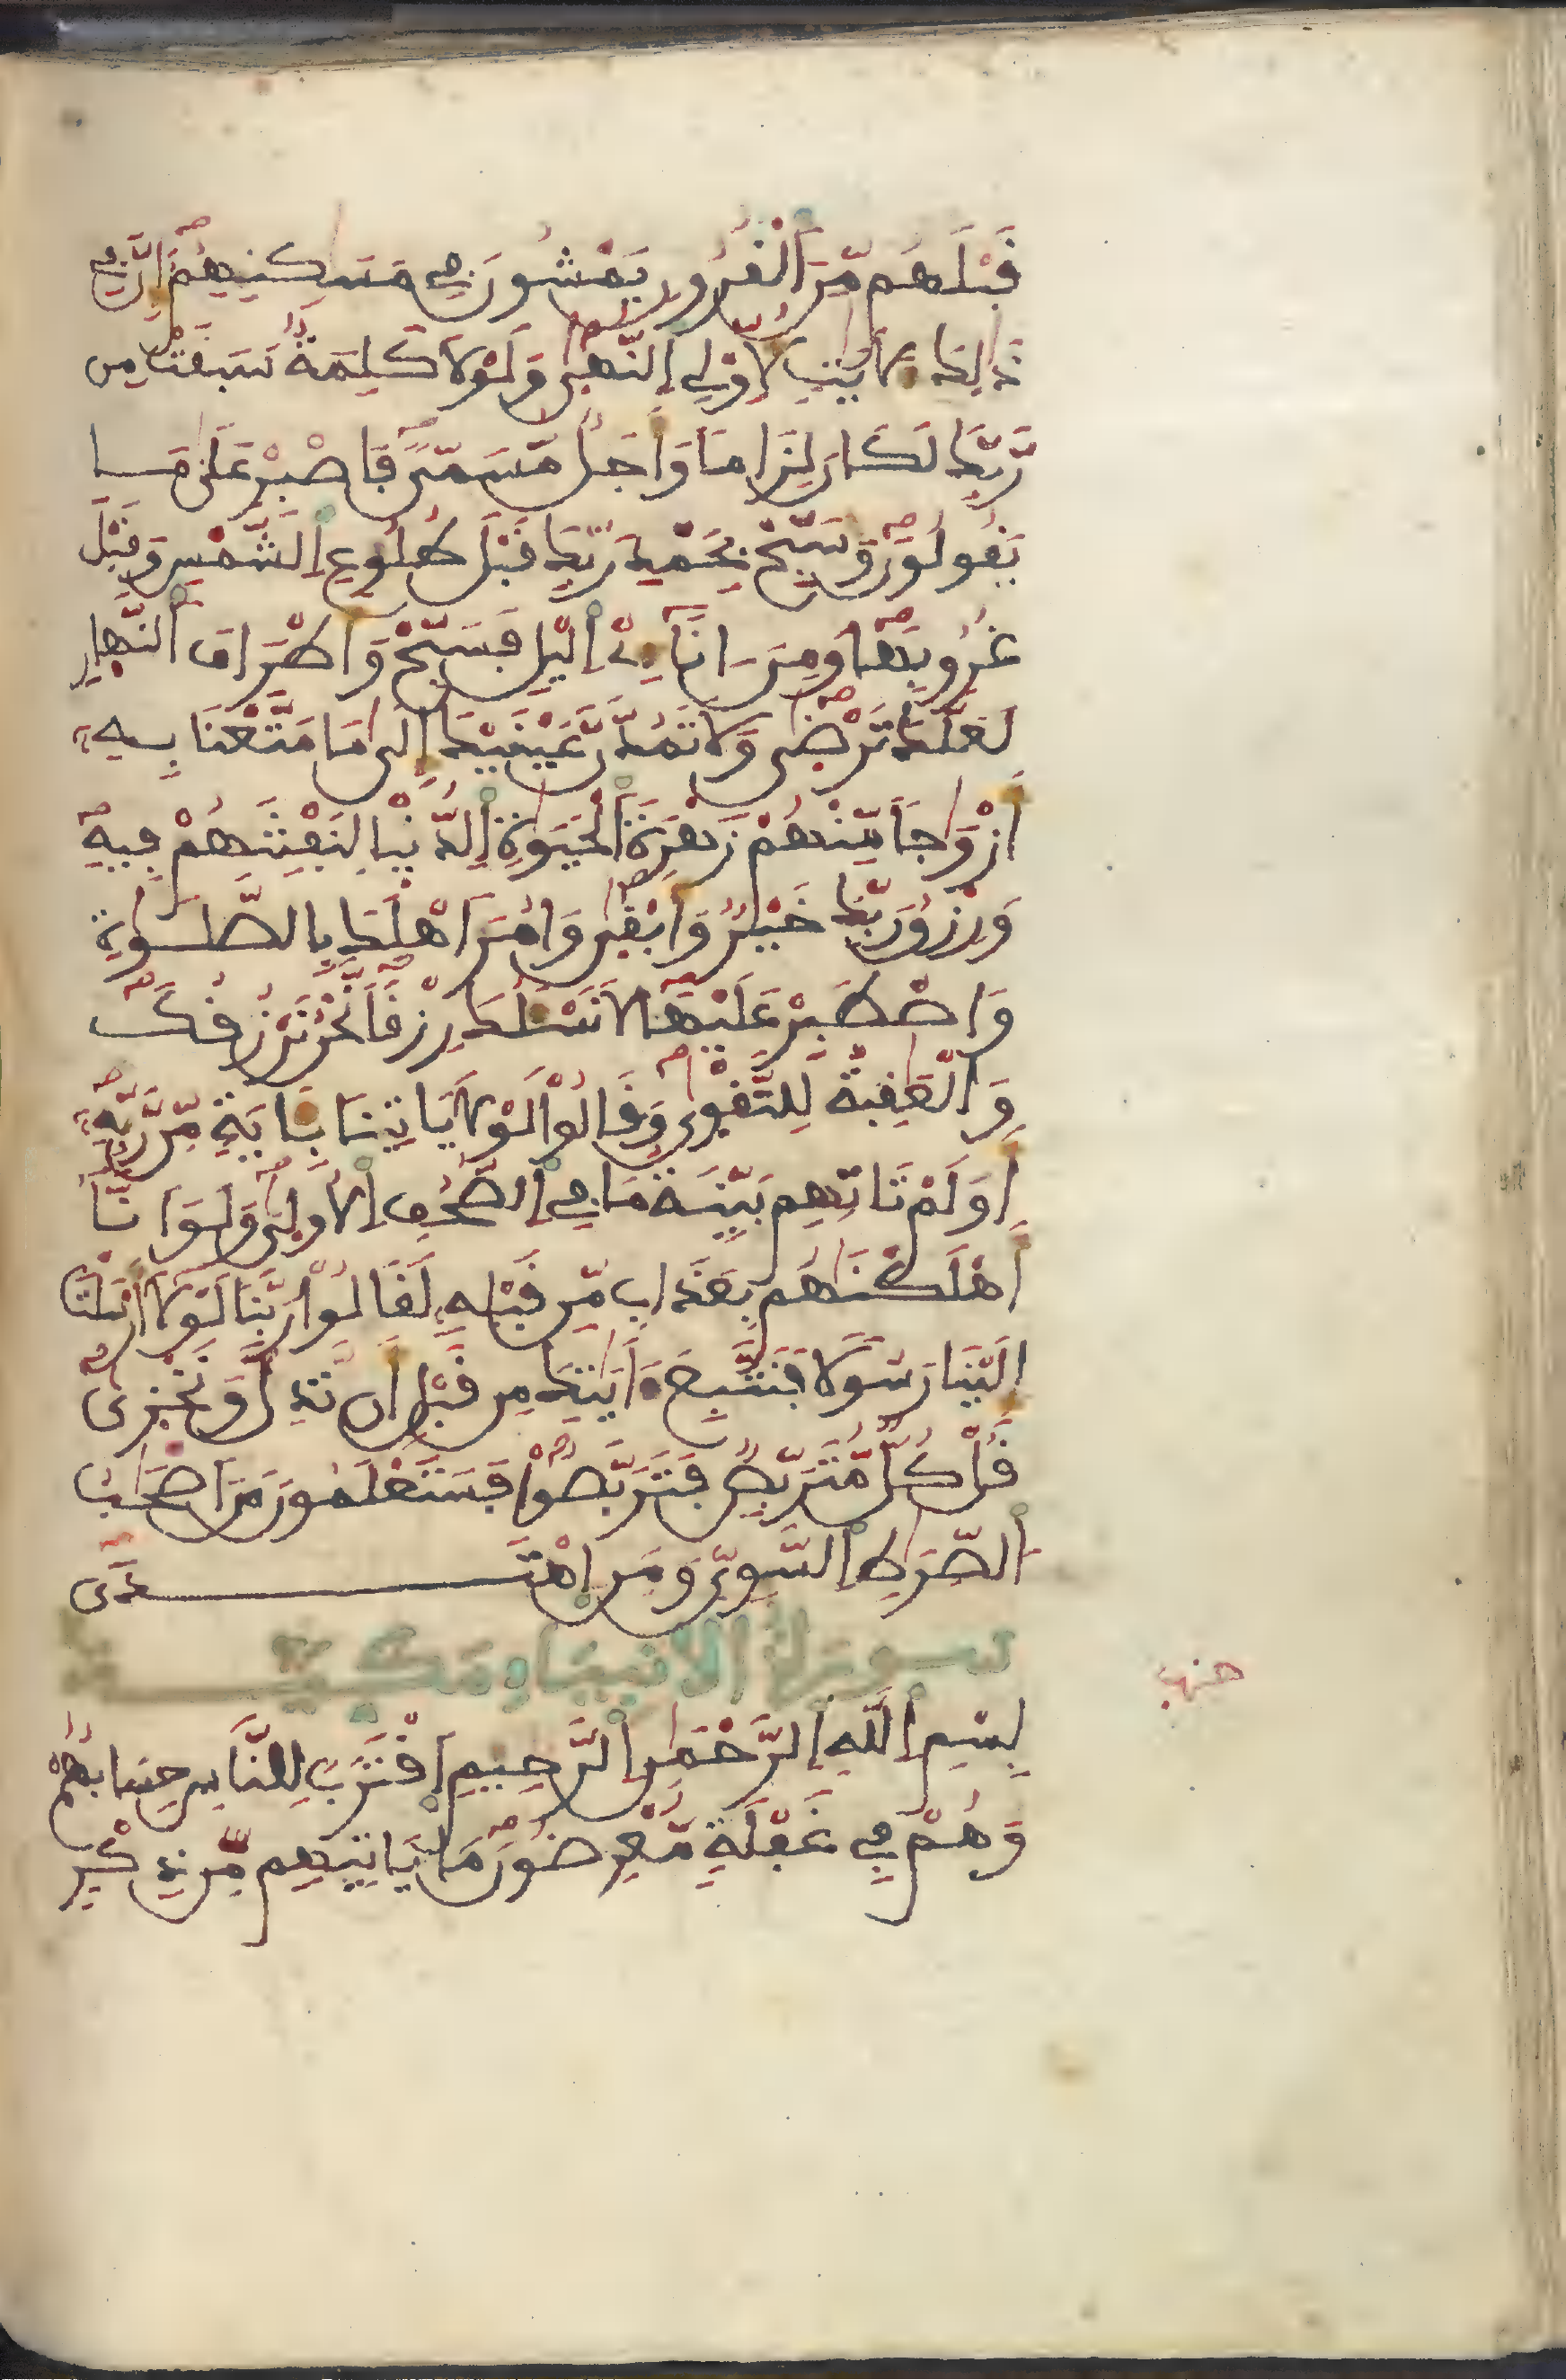 قَبْلَهُم مِّنَ ٱلْقُرُونِ يَمْشُونَ فِى مَسَٰكِنِهِمُۥٓ إِنَّ فِى
ذَٰلِكَ ءَلَايَٰتٍ لِّأُوْلِى ٱلنُّهَىٰ وَلَوْلَا كَلِمَةٌ سَبَقَتْ مِن
رَّبِّكَ لَكَانَ لِزَاماً وَأَجَلٌ مُّسَمًّى فَاصْبِرْ عَلَىٰ مَا
يَقُولُونَ وَسَبِّحْ بِحَمْدِ رَبِّكَ قَبْلَ طُلُوعِ ٱلشَّمْسِ وَقَبْلَ
غُرُوبِهَا وَمِنَ ـانَآءِےْ ٱلَّيْلِ فَسَبِّحْ وَأَطْرَافَ ٱلنَّهَارِ
لَعَلَّكَ تَرْضَىٰ وَلَا تَمُدَّنَّ عَيْنَيْكَ إِلَىٰ مَا مَتَّعْنَا بِهِۦٓ
أَزْوَٰجاً مِّنْهُمْ زَهْرَةَ ٱلْحَيَوٰةِ ٱلدُّنْيَا لِنَفْتِنَهُمْ فِيهِ
وَرِزْقُ رَبِّكَ خَيْرٌ وَأَبْقَىٰ وَامُرَ اَهْلَكَ بِالصَّلَوٰةِ
وَاصْطَبِرْ عَلَيْهَا لَا نَسْـَٔلُكَ رِزْقاً نَّحْنُ نَرْزُقُكَ
وَالْعَٰقِبَةُ لِلتَّقْوَىٰ وَقَالُواْ لَوْلَا يَاتِينَا بِـَٔايَةٍ مِّن رَّبِّهِۦٓ
أَوَلَمْ تَاتِهِم بَيِّنَةُ مَا فِى ٱلصُّحُفِ ٱلُاولَىٰ وَلَوَ اَنَّآ
أَهْلَكْنَٰهُم بِعَذَابٍ مِّن قَبْلِهِۦ لَقَالُواْ رَبَّنَا لَوْلَا أَرْسَلْتَ
إِلَيْنَا رَسُولًا فَنَتَّبِعَ ءَايَٰتِكَ مِن قَبْلِ أَن نَّذِلَّ وَنَخْزَىٰ
قُلْ كُلٌّ مُّتَرَبِّصٌ فَتَرَبَّصُواْ فَسَتَعْلَمُونَ مَنَ اَصْحَٰبُ
ٱلصِّرَٰطِ ٱلسَّوِىِّ وَمَنِ اِهْتَدَىٰ
سورة الانبياء مكية
حزب
بِسْمِ ٱللَّهِ ٱلرَّحْمَٰنِ ٱلرَّحِيمِ اِقْتَرَبَ لِلنَّاسِ حِسَابُهُمْ
وَهُمْ فِى غَفْلَةٍ مُّعْرِضُونَ مَا يَاتِيهِم مِّن ذِكْرٍ